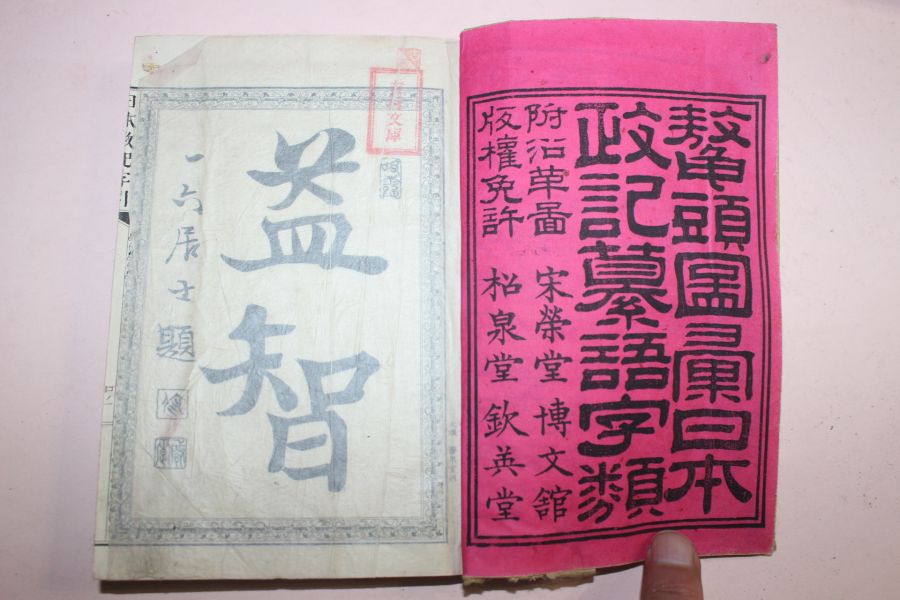 鼇頭圖彙日本
政記纂語字類
附沿革圖 宋榮堂 博文舘
版權免許 松泉堂 欽英堂
益智
一六居士題
文庫